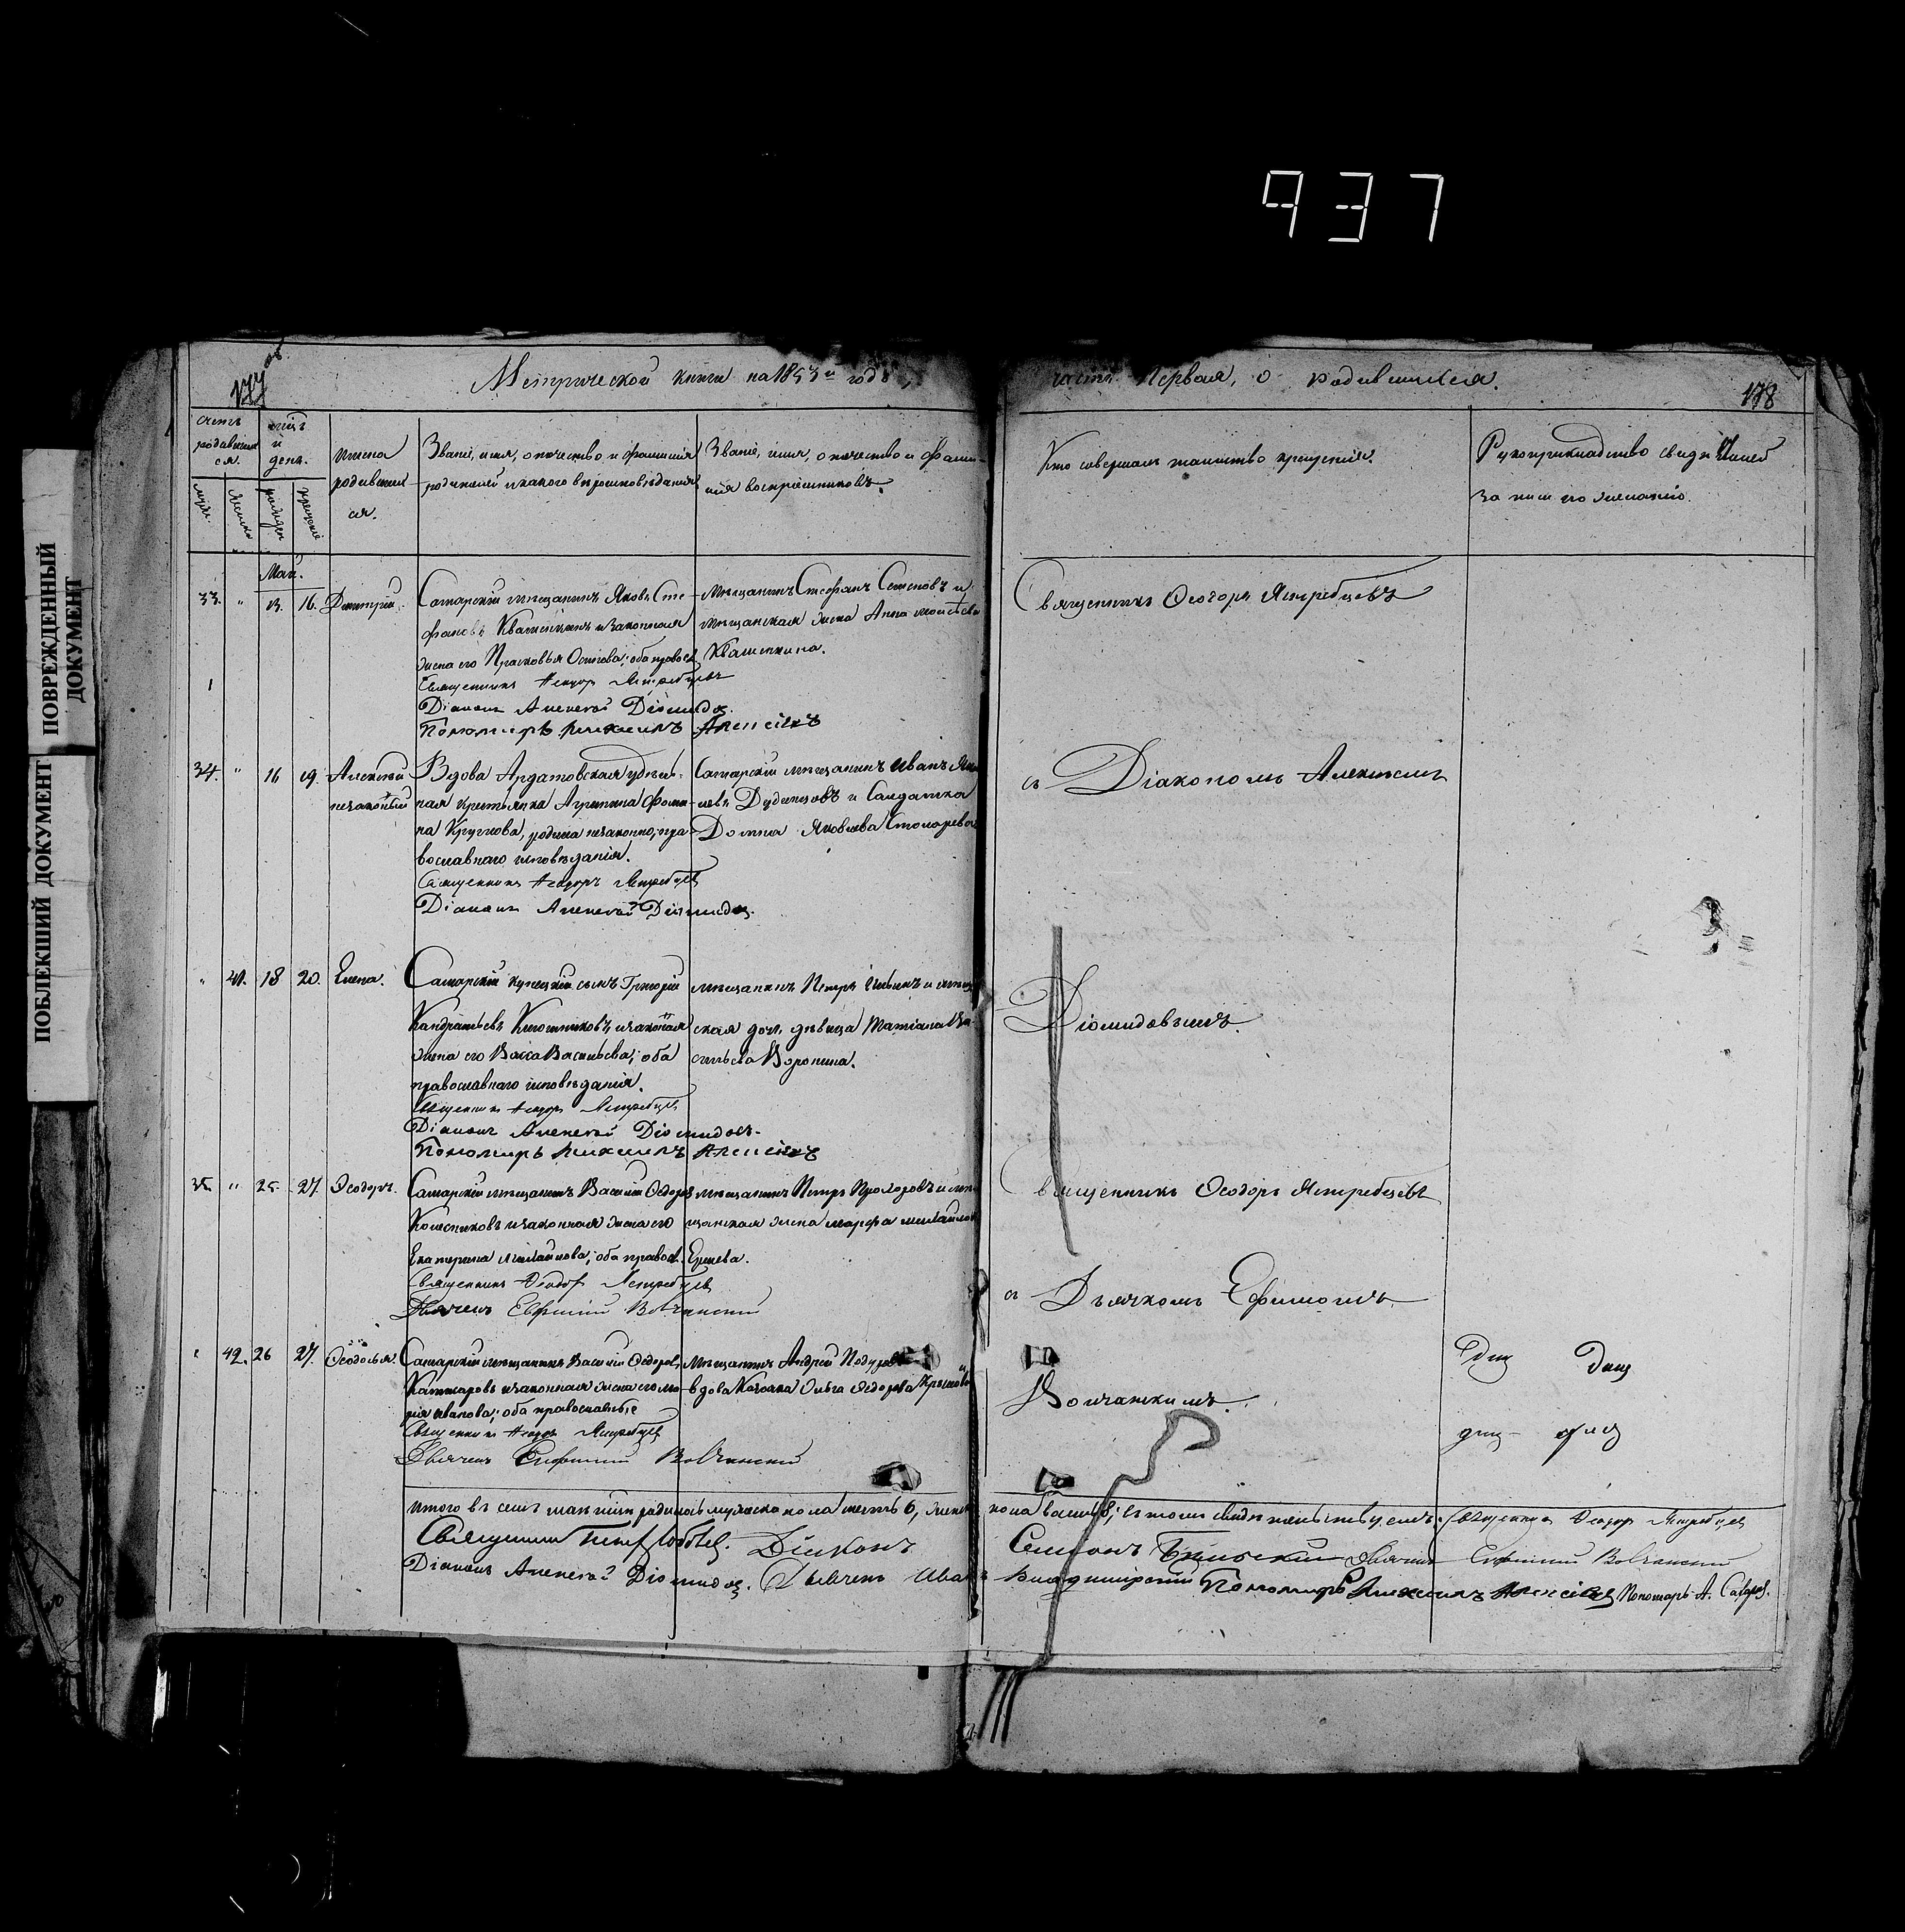 937
ПОВРЕЖДЕННЫЙ ДОКУМЕНТ
ПОБЛЕКШИЙ ДОКУМЕНТ
177 об
Метрической книги на 1853й годъ,
часть Первая, о родившихся.
178
Счетъ родившихся.
мужс.
Женск.
мцъ и день.
рожденія
крещенія
Имена родившихся.
Званіе, имя, отчество и фамилія
родителей и какого вѣроисповѣданія.
Званіе, имя, отчество и фами-
лія воспріемниковъ.
Кто совершалъ таинство крещенія.
Рукоприкладство свидѣтелей
за писи по желанію.
Май.
33. " 13. 16. Димитрій.
Самарскій мѣщанинъ Яковъ Сте-
фановъ Квашенкинъ и законная
жена его Прасковья Осипова; оба правос.
Священникъ Ѳеодоръ Ястребцевъ
Діаконъ Алексѣй Діомидов.
Пономарь Михаилъ Алексѣевъ
Мѣщанинъ Стефанъ Семеновъ и
мѣщанская жена Анна Моисѣева
Квашенкина.
Священникъ Ѳеодоръ Ястребцевъ
34. " 16 19. Алексѣй незаконный
Вдова Ардатовская удѣль-
ная крестьянка Агрипина Фоми-
на Круглова, родила незаконно, пра-
вославнаго исповѣданія.
Священникъ Ѳеодоръ Ястребцев
Діаконъ Алексѣй Діомидов.
Самарскій мѣщанинъ Иванъ Яков-
левъ Дудинцовъ и Солдатка
Домна Яковлева Столарева
съ Діакономъ Алексѣемъ
" 41. 18 20. Елена.
Самарскій купецкій сынъ Григорій
Кандратьевъ Ключниковъ и законная
жена его Васса Васильева; оба
православнаго исповѣданія.
Священникъ Ѳеодоръ Ястребцев
Діаконъ Алексѣй Діомидовъ
Пономарь Михаилъ Алексѣевъ
мѣщанинъ Петръ и мѣщан-
ская дочь дѣвица Татіана Ва-
сильева Воронина.
Діомидовымъ.
35. " 25. 27. Ѳеодоръ.
Самарскій мѣщанинъ Василій Ѳедоровъ
Колесниковъ и законная жена его
Екатерина Михайлова; оба правосл.
Священникъ Ѳеодоръ Ястребцев
Дьячекъ Евфимій Волчанскій
мѣщанинъ Петръ Прохоровъ и мѣ-
щанская жена Марфа Михайлова
Ершева.
Священникъ Ѳеодоръ Ястребцевъ
съ Дьячкомъ Ефимомъ
" 42. 26 27. Ѳеодосья.
Самарскій мѣщанинъ Василій Ѳедоровъ
Каштаровъ и законная жена его Ма-
рія Иванова; оба православные
Священникъ Ѳеодоръ Ястребцев
Дьячекъ Евфимій Волчанскій
Мѣщанинъ Андрей
вдова Казачка Ольга Ѳедорова
Волчанскимъ.
Итого въ семъ маѣ мцѣ родилось мужеска пола шесть 6, женска
пола восмь 8; въ томъ свидѣтельствуемъ: Священникъ Ѳеодоръ Ястребцев
Священникъ
Діаконъ Семіонъ
Дьячекъ Евфимій Волчанскій
Діаконъ Алексѣй Діомидов. Дьячекъ Иванъ
Владимірскій Пономарь Михаилъ Алексѣев Пономарь А.